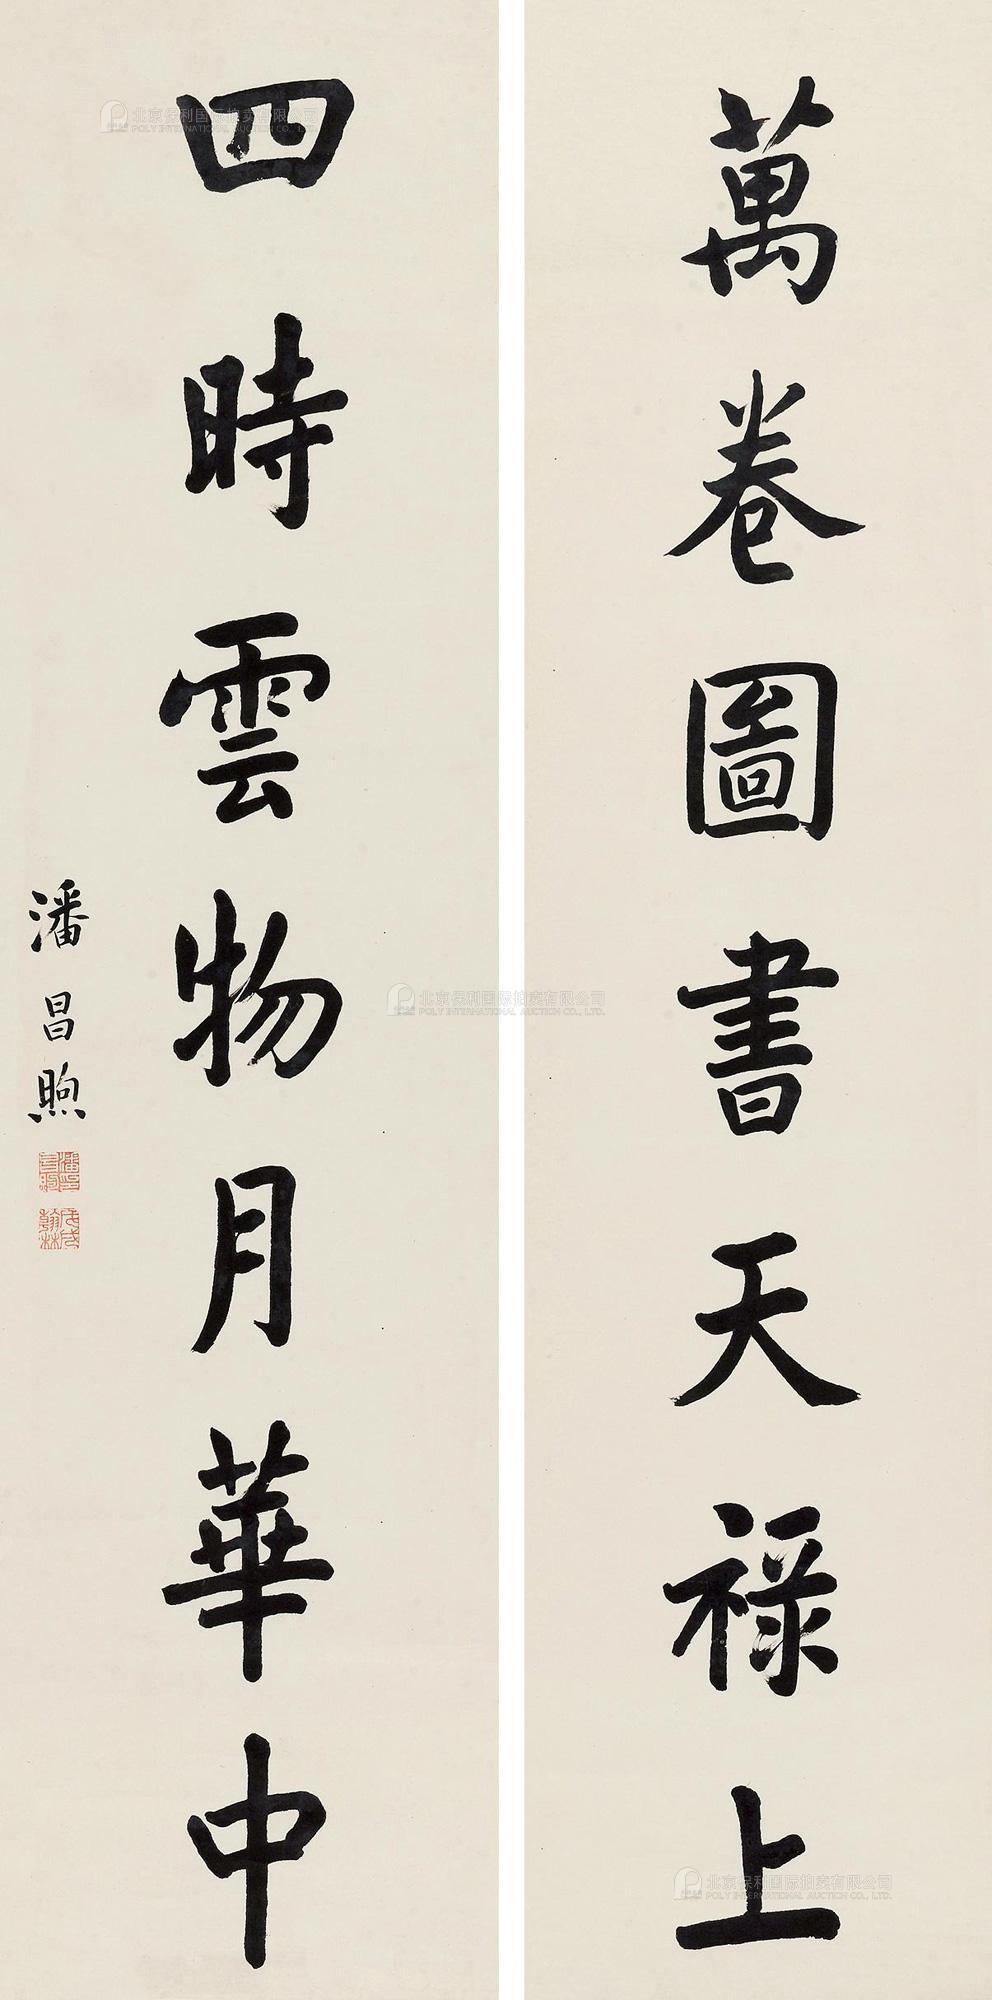 萬卷圖書天祿上
四時雲物月華中
潘昌煦
潘昌煦印
戊戌翰林
北京保利国际拍卖有限公司
POLY INTERNATIONAL AUCTION CO., LTD.
北京保利国际拍卖有限公司
POLY INTERNATIONAL AUCTION CO., LTD.
北京保利国际拍卖有限公司
POLY INTERNATIONAL AUCTION CO., LTD.